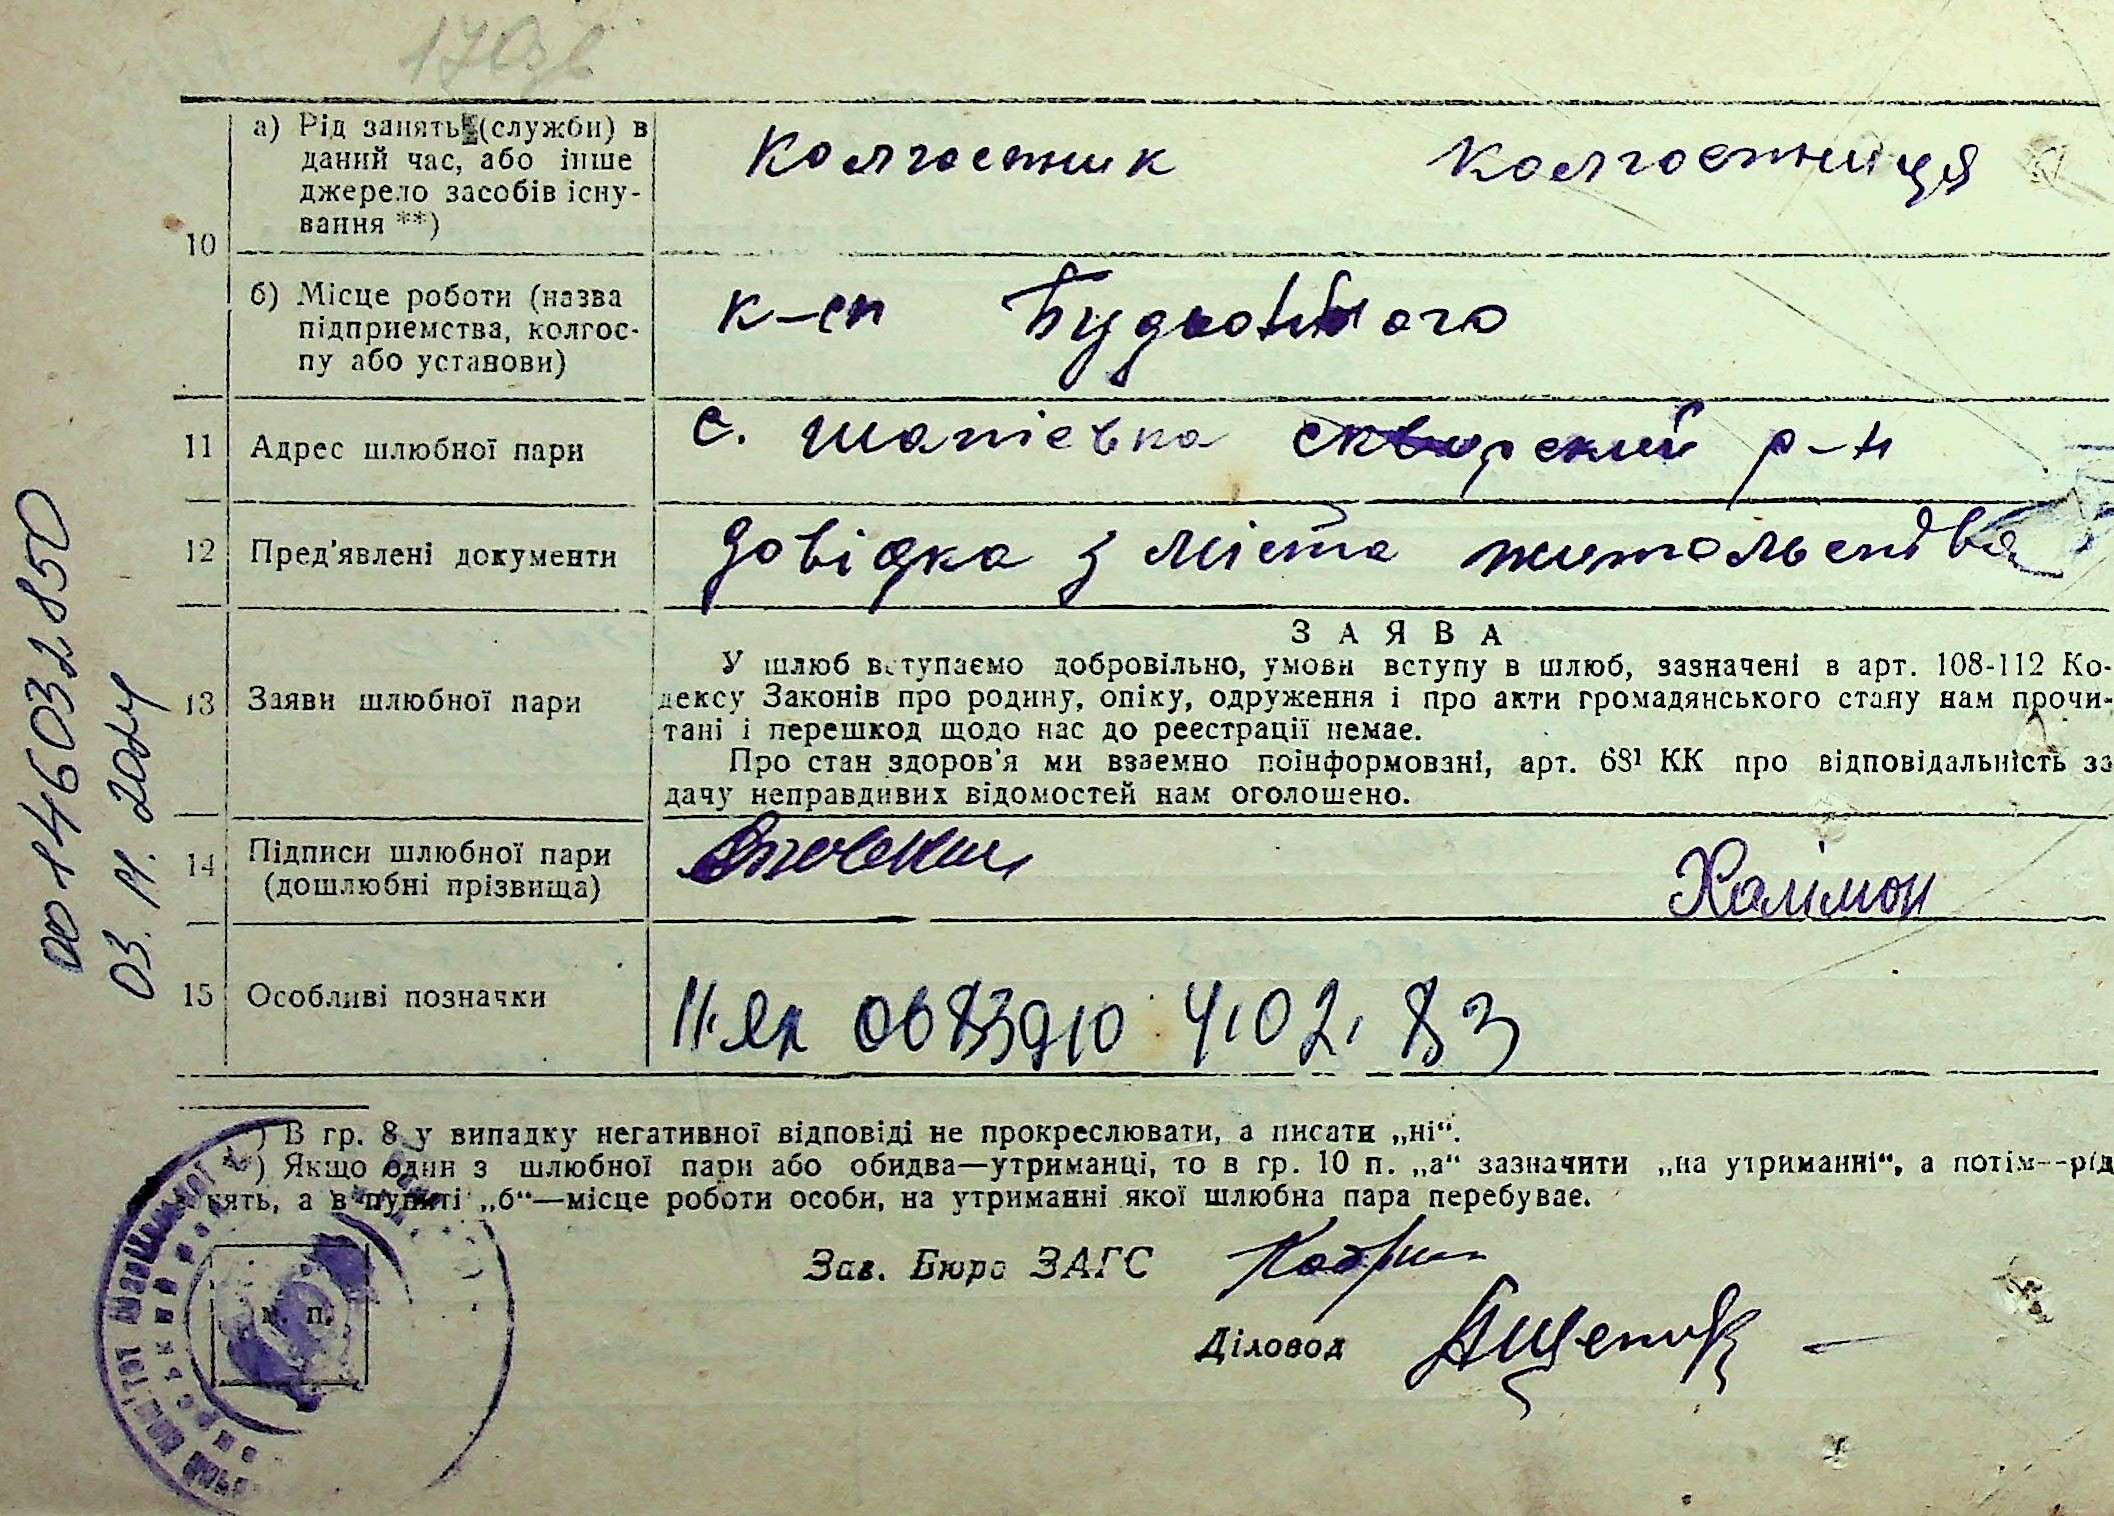 10
а) Рід занять (служби) в
даний час, або інше
джерело засобів існу-
вання **)
Колгоспник Колгоспниця
б) Місце роботи (назва
підприемства, колгос-
пу або установи)
к-сп Будьонного
11 Адрес шлюбної пари
с. Шапіевка сквирский р-н
12 Пред'явлені документи
довідка з міста
13 Заяви шлюбної пари
ЗАЯВА
У шлюб вступаємо добровільно, умови вступу в шлюб, зазначені в арт. 108-112 Ко-
дексу Законів про родину, опіку, одруження і про акти громадянського стану нам прочи-
тані і перешкод щодо нас до реестрації немае.
Про стан здоров'я ми взаемно поінформовані, арт. 68¹ КК про відповідальність за
дачу неправдивих відомостей нам оголошено.
14 Підписи шлюбної пари
(дошлюбні прізвища)
Халімон
15 Особливі позначки
4.02.83
00 146032850
03.11.2024
*) В гр. 8 у випадку негативної відповіді не прокреслювати, а писати „ні“.
**) Якщо один з шлюбної пари або обидва—утриманці, то в гр. 10 п. „а“ зазначити „на утриманні“, а потім—рід
нять, а в пункті „б“—місце роботи особи, на утриманні якої шлюбна пара перебувае.
Зав. Бюро ЗАГС
Діловод
М. П.